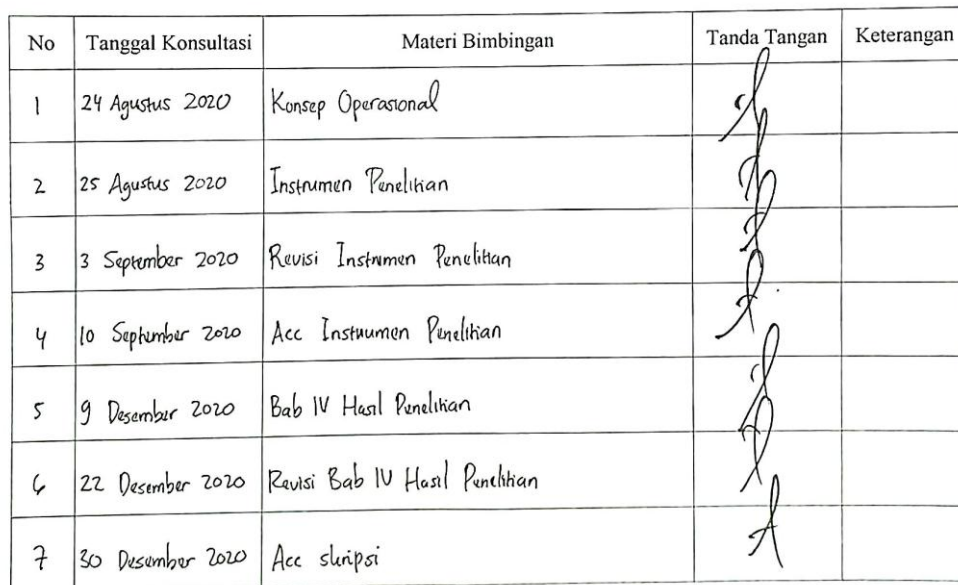 No Tanggal Konsultasi Materi Bimbingan Tanda Tangan Keterangan
1 24 Agustus 2020 Konsep Operasional
2 25 Agustus 2020 Instrumen Penelitian
3 3 September 2020 Revisi Instrumen Penelitian
4 10 September 2020 Acc Instrumen Penelitian
5 9 Desember 2020 Bab IV Hasil Penelitian
6 22 Desember 2020 Revisi Bab IV Hasil Penelitian
7 30 Desember 2020 Acc skripsi